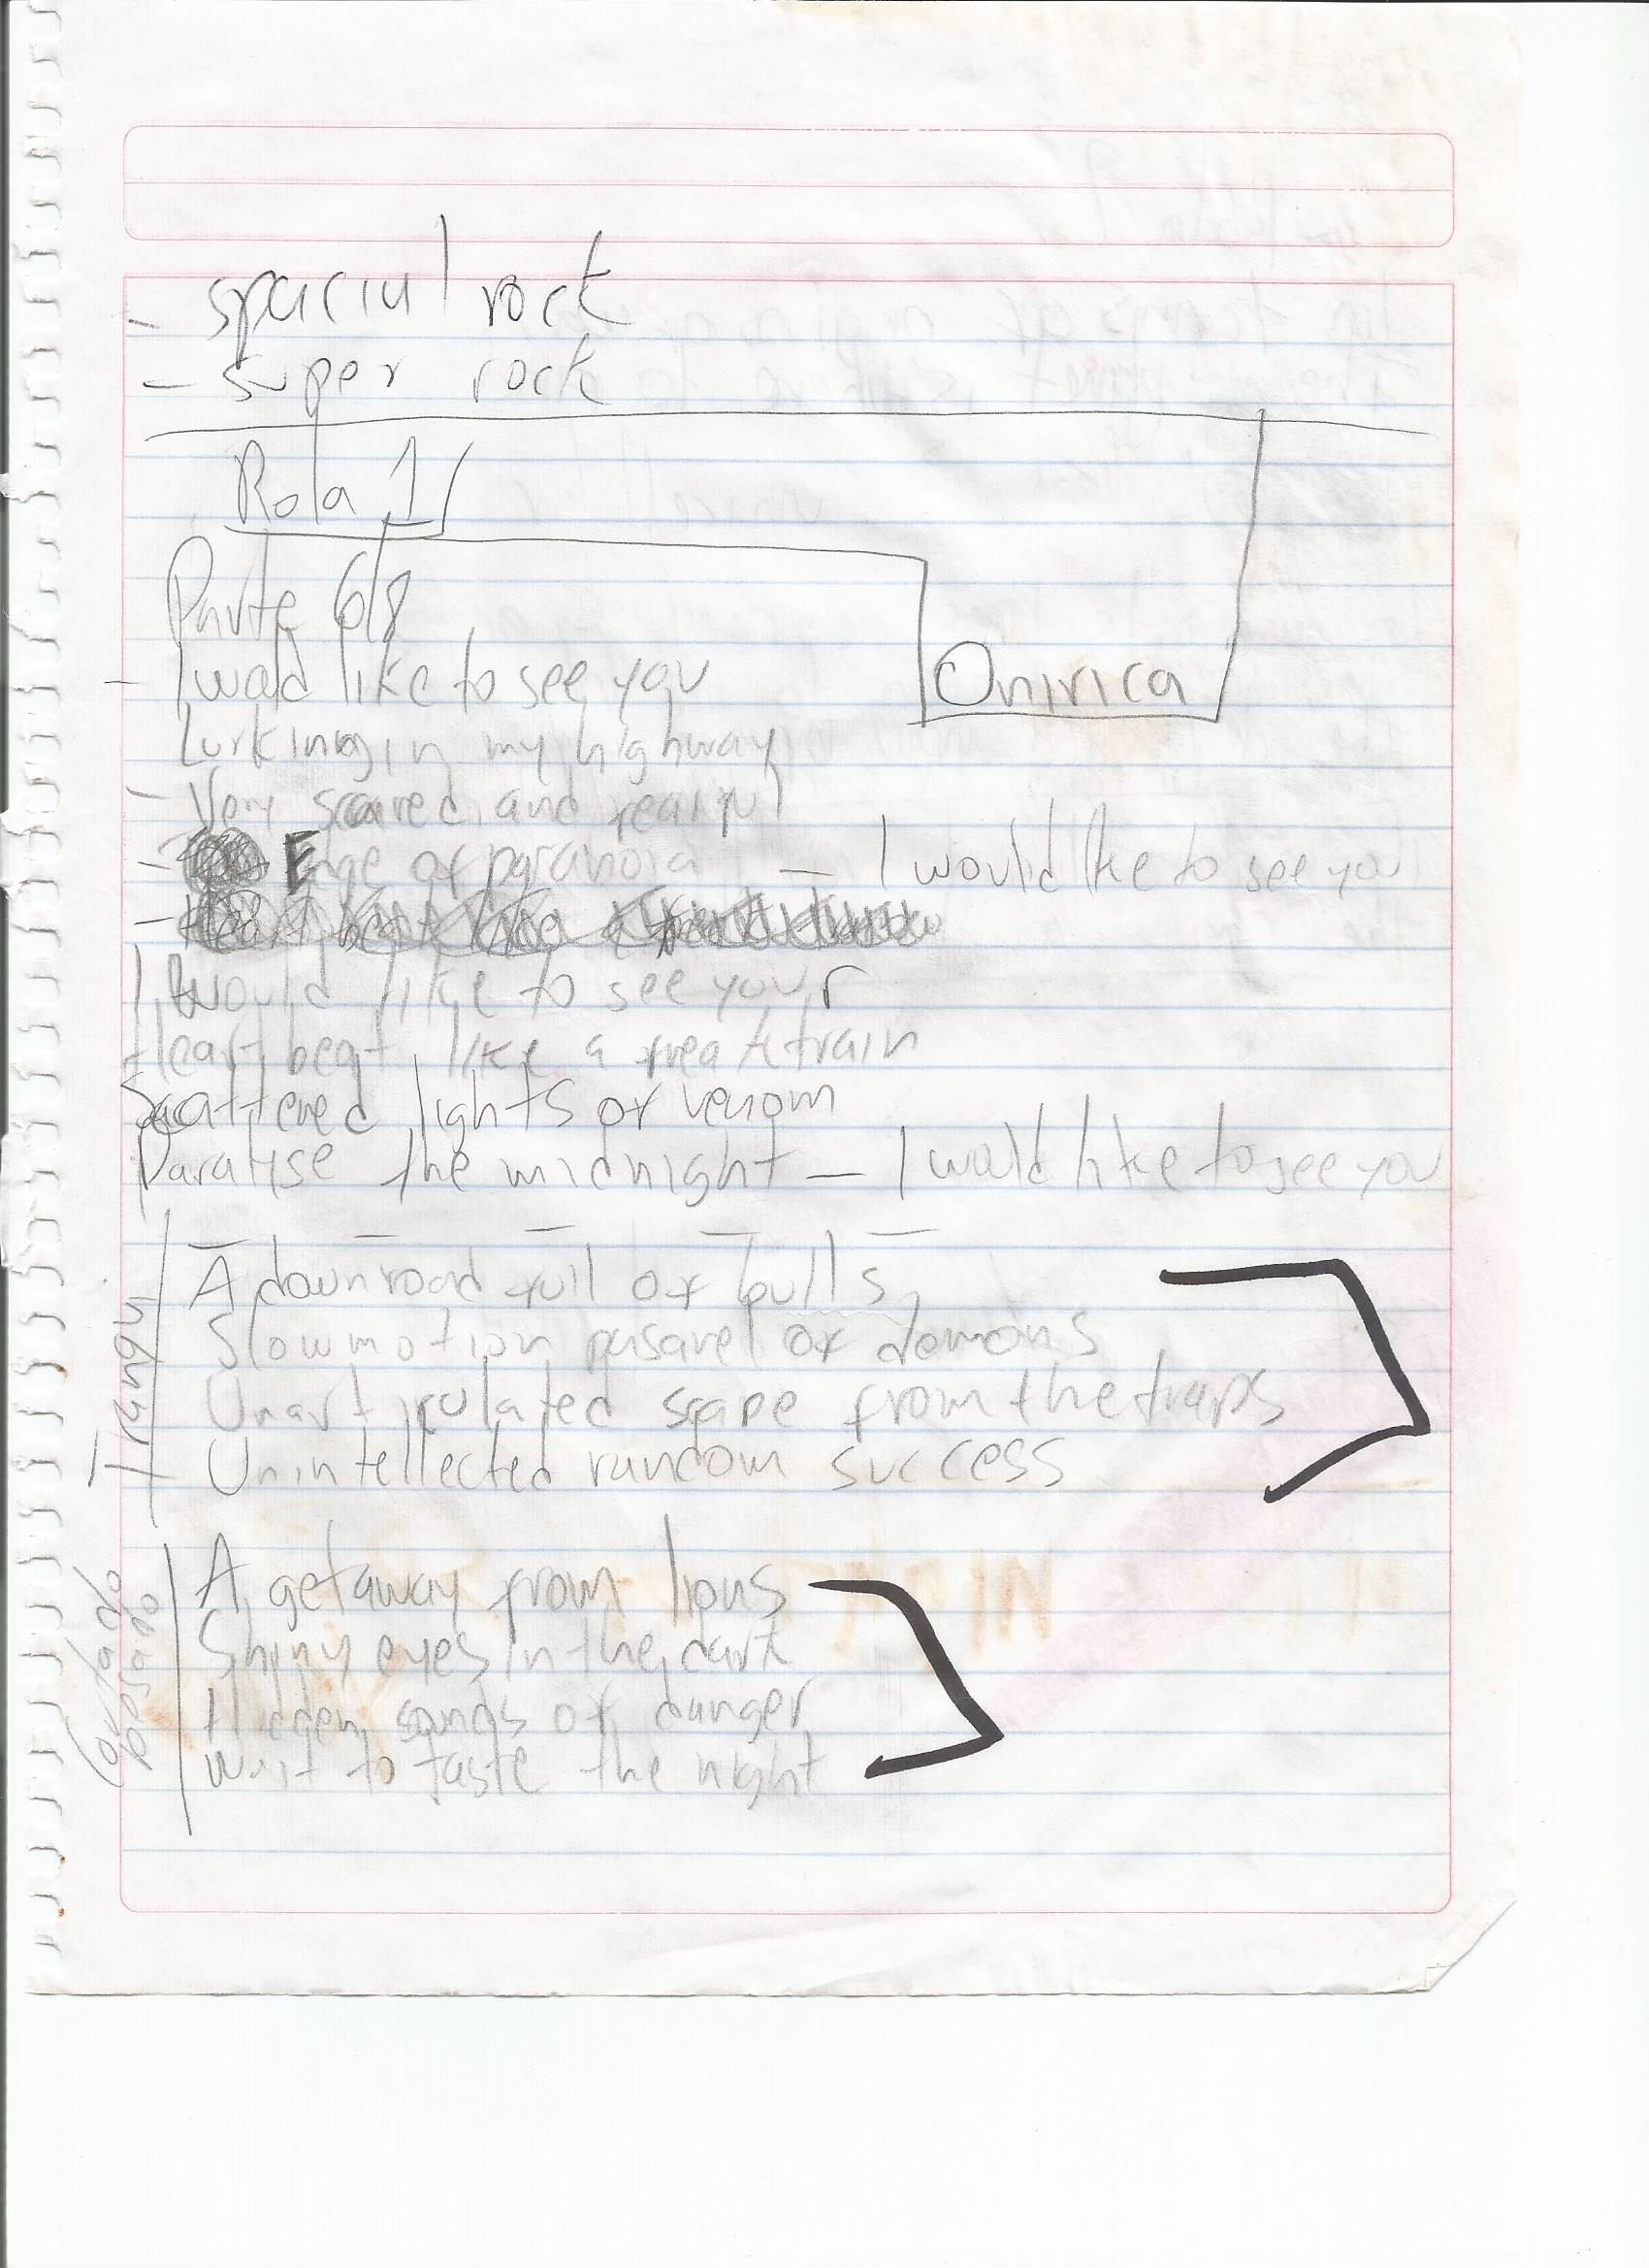 - spacial rock
- super rock
Rola 1
Parte 6/8
Onirica
- I would like to see you
Lurking in my highway
- Very scared, and fearful
- Edge of paranoia - I would like to see you
- Heart beat like a
I would like to see your
Heart beat like a freak train
Scattered lights of venom
Paralyse the midnight - I would like to see you
Tranqu
A downroad full of bulls
Slowmotion of demons
Unarticulated scape from the traps
Unintellected random success
Cortado
pesado
A getaway from lions
Shiny eyes in the dark
Hidden sounds of danger
Wait to taste the night